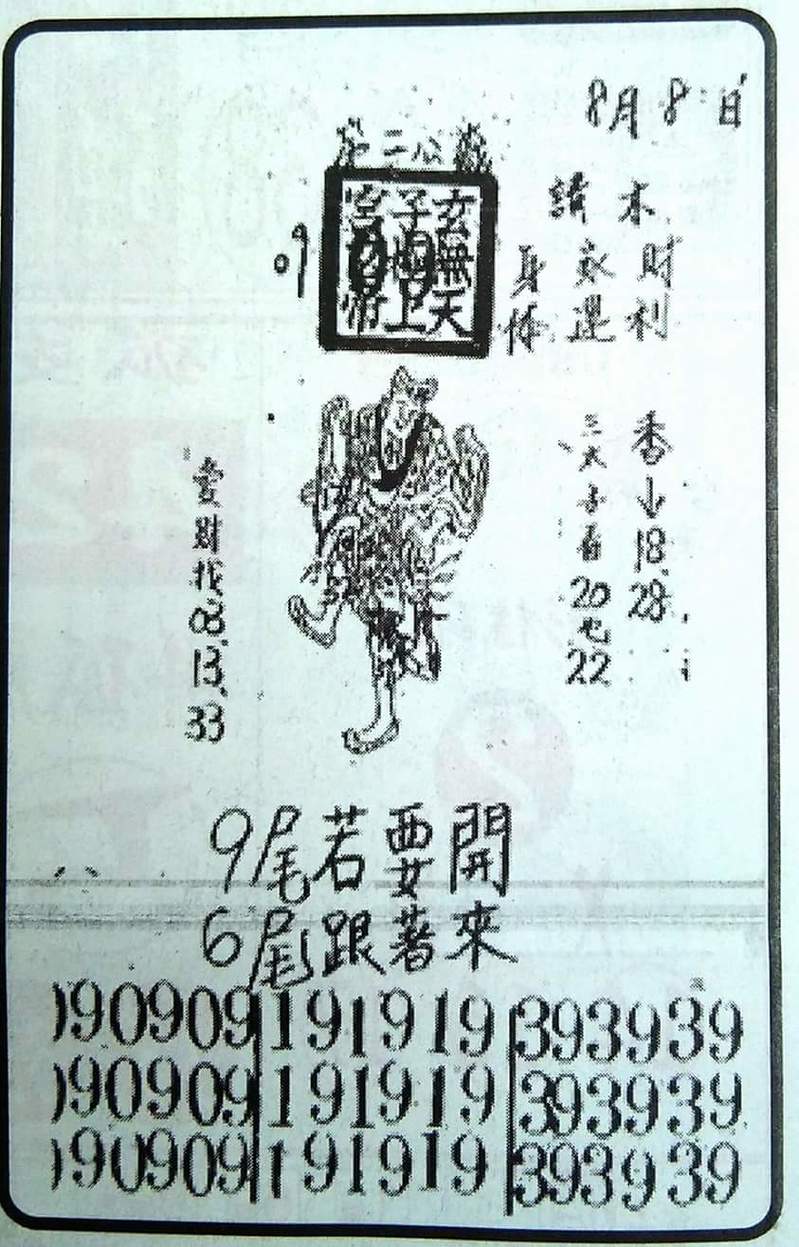 8月8日
二公
玄無天
子上
宮
09
木
財利
請
永運
身体
香山 18 28
三太子
20 22
財找 08 13 33
9尾若要開
6尾跟著來
090909 191919 393939
090909 191919 393939
090909 191919 393939